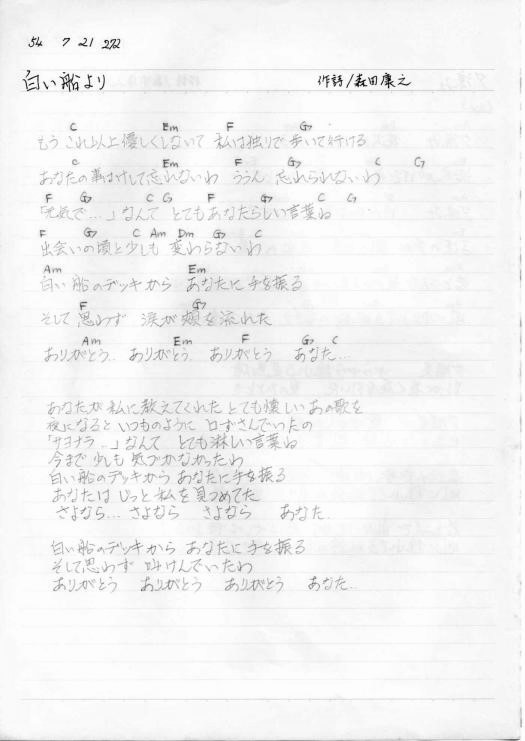 54 7 21 272
白い船より 作詩/森田康之
C Em F G7
もうこれ以上優しくしないで 私は独りで歩いて行ける
C Em F G7 C G7
あなたの事はけして忘れないわ ううん 忘れられないわ
F G7 C G F G7 C G7
「元気で...」なんて とてもあなたらしい言葉ね
F G7 C Am Dm G7 C
出会いの頃と少しも 変わらないわ
Am Em
白い船のデッキから あなたに手を振る
F G7
そして思わず 涙が頬を流れた
Am Em F G7 C
ありがとう.. ありがとう. ありがとう あなた...
あなたが私に教えてくれた とても懐しいあの歌を
夜になると いつものように 口ずさんでいたの
「サヨナラ...」なんて とても淋しい言葉ね
今まで少しも 気づかなかったわ
白い船のデッキから あなたに手を振る
あなたは じっと私を見つめてた
さよなら... さよなら さよなら あなた.
白い船のデッキから あなたに手を振る
そして思わず 叫けんでいたわ
ありがとう ありがとう ありがとう あなた...